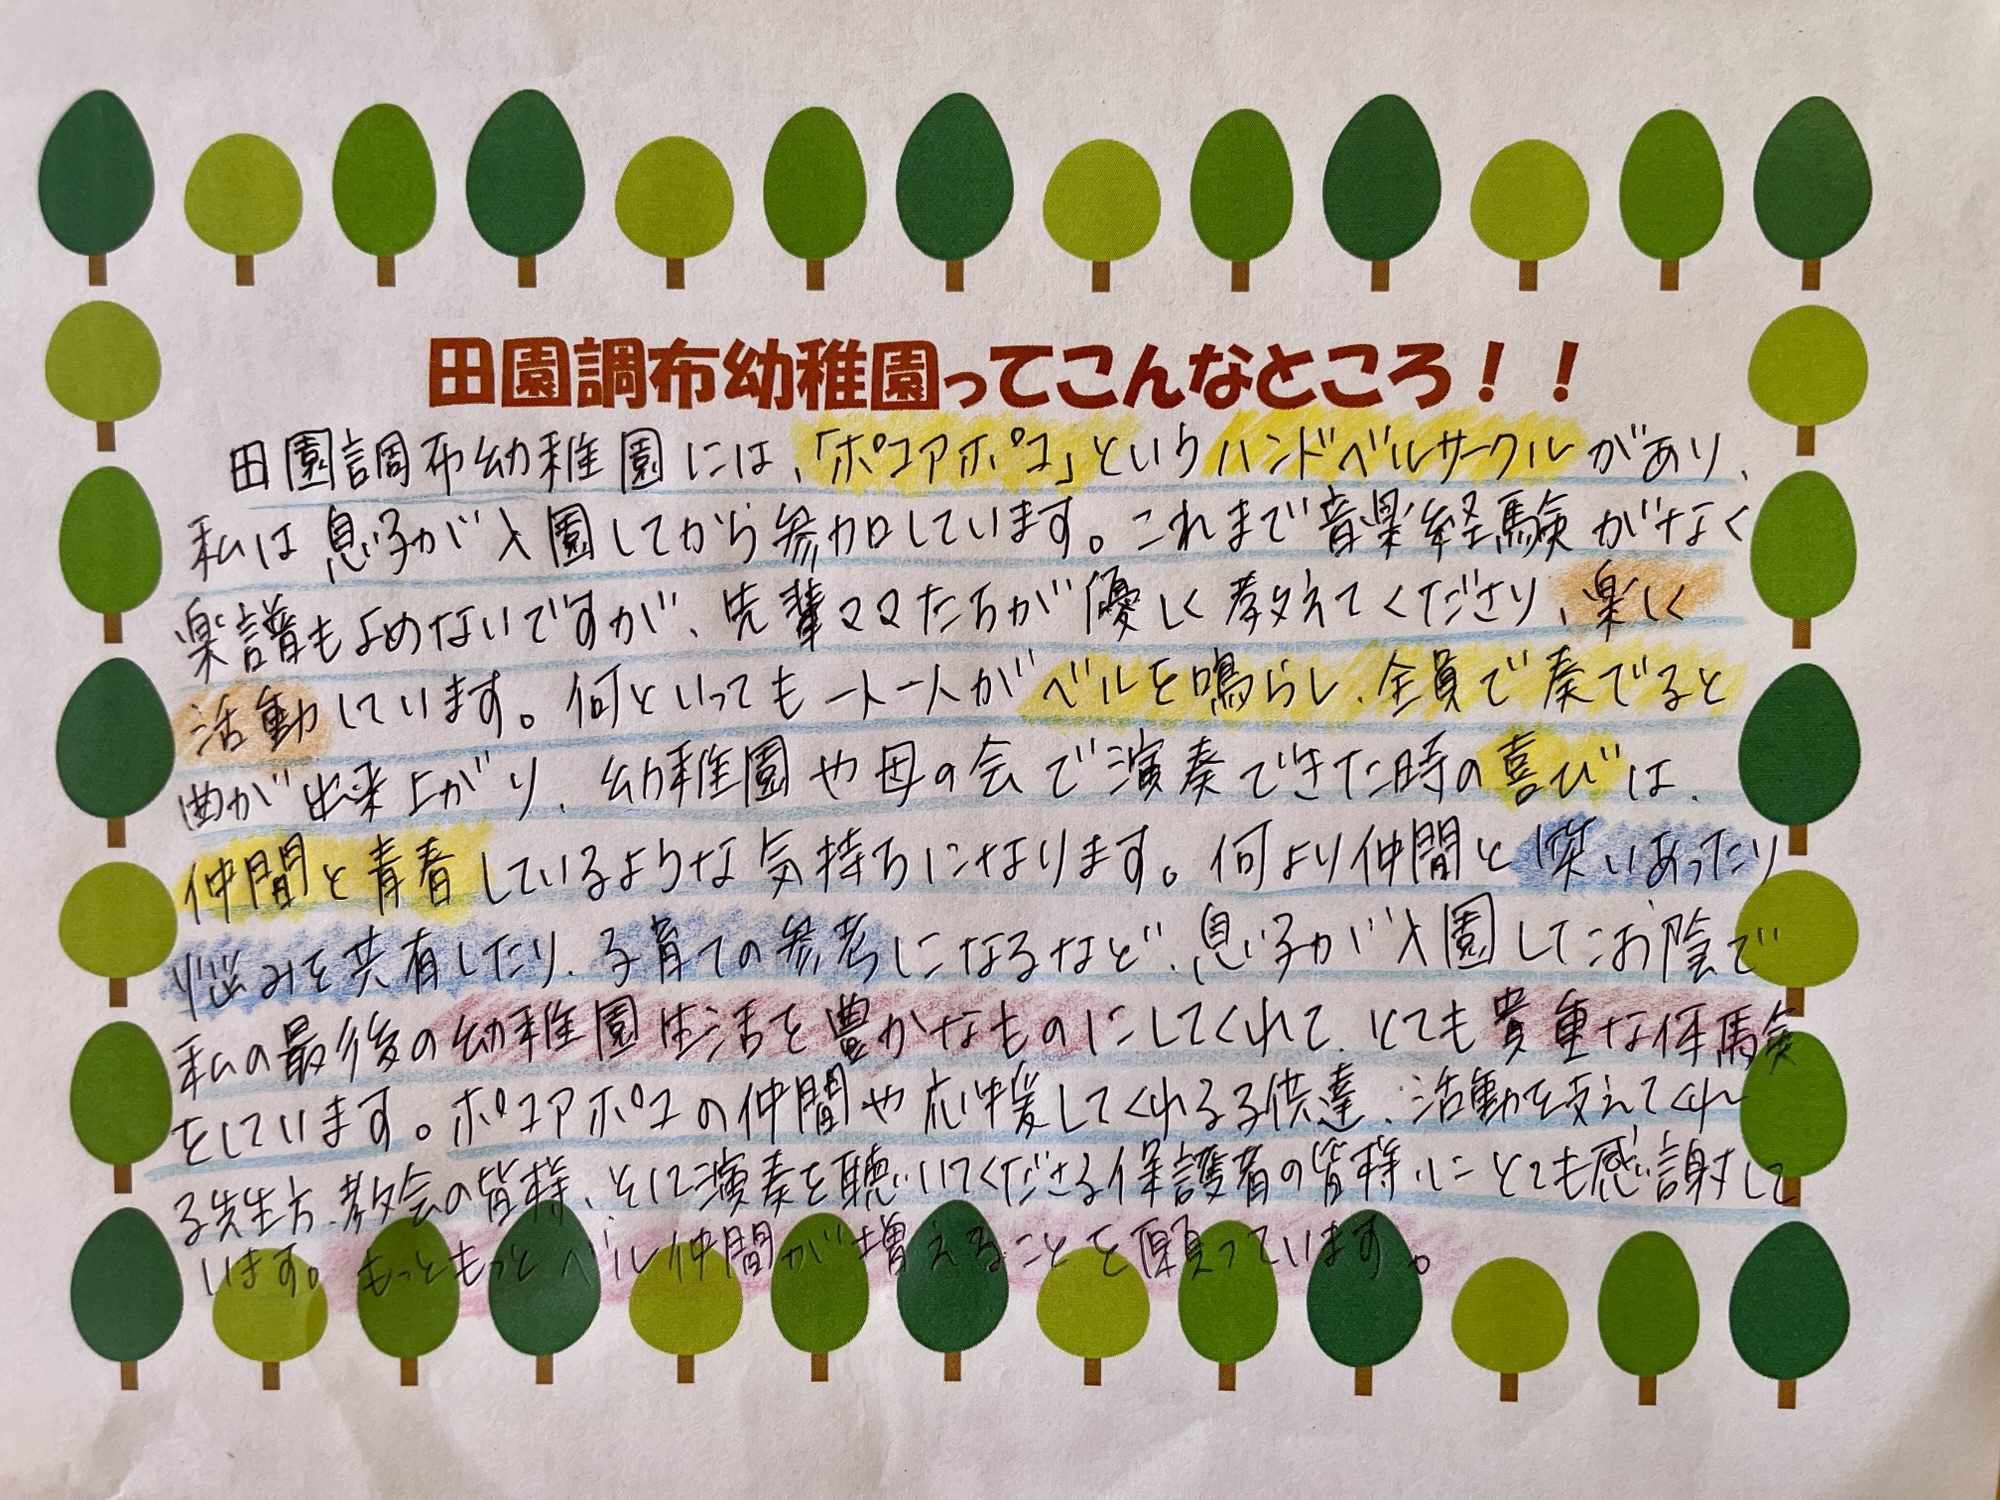 田園調布幼稚園ってこんなところ！！
田園調布幼稚園には、「ポコアポコ」というハンドベルサークルがあり、
私は息子が入園してから参加しています。これまで音楽経験がなく
楽譜もよめないですが、先輩ママたちが優しく教えてくださり、楽しく
活動しています。何といっても一人一人がベルを鳴らし、全員で奏でると
曲が出来上がり、幼稚園や母の会で演奏できた時の喜びは、
仲間と青春しているような気持ちになります。何より仲間と笑いあったり
悩みを共有したり、子育ての参考になるなど、息子が入園したお陰で
私の最後の幼稚園生活を豊かなものにしてくれて、とても貴重な体験
をしています。ポコアポコの仲間や応援してくれる子供達、活動を支えてくれ
る先生方、教会の皆様、そして演奏を聴いてくださる保護者の皆様にとても感謝して
います。もっともっとベル仲間が増えることを願っています。